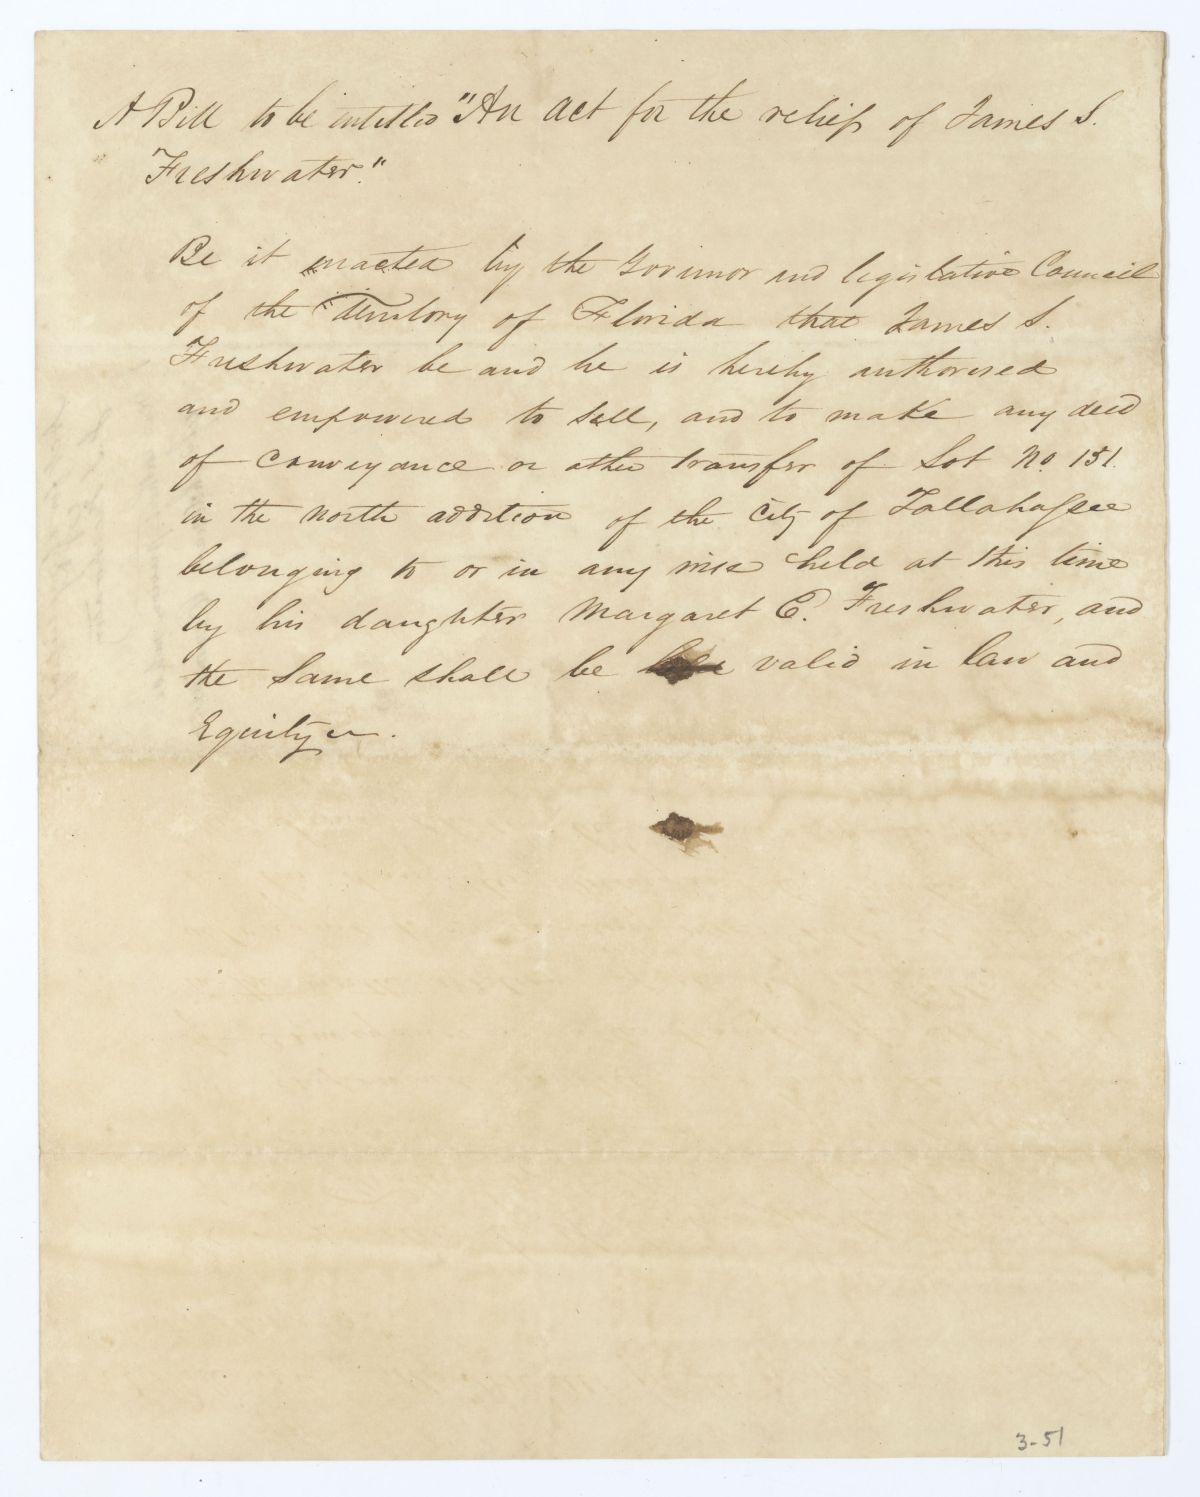 A Bill to be intitled "An act for the relief of James S.
Freshwater."
Be it enacted by the Governor and legislative Council
of the Territory of Florida that James S.
Freshwater be and he is hereby authorised
and empowered to sell, and to make any deed
of conveyance or other transfer of Lot No. 151.
in the north addition of the City of Tallahassee
belonging to or in any wise held at this time
by his daughter Margaret E. Freshwater, and
the same shall be valid in law and
Equity.
3-51